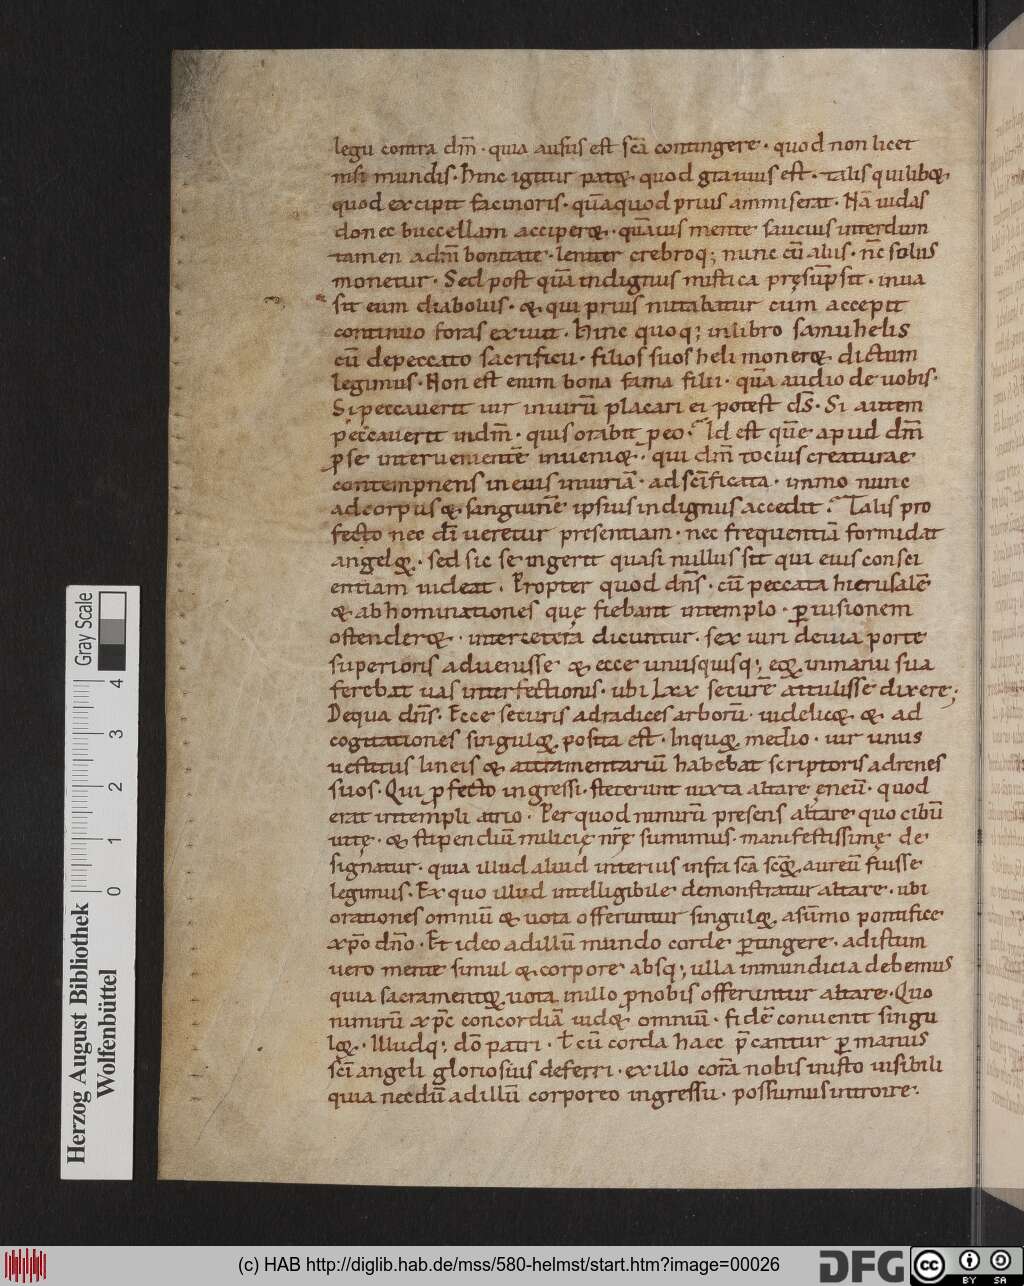 legu contra dm̄ · quia ausus est scā contingere · quod non licet
nisi mundis · Hinc igitur patꝫ quod grauius est · talis quilibꝫ
quod excipit facinoris · quā quod prius ammiserat · Nā iudas
donec buccellam acciperꝫ · quāuis mente saucius interdum
tamen a dn̄i bonitate · leniter crebroq; nunc cū aliis · nc̄ solus
monetur · Sed post quā indignus mistica pręsūpsit · inua
sit eum diabolus · & qui prius nutabatur cum accepit
continuo foras exiuit · Hinc quoq; in libro samuhelis
cū de peccato sacrificii · filios suos heli monerꝫ dictum
legimus · Non est enim bona fama filii · quā audio de uobis ·
Si peccauerit uir in uirū placari ei potest ds̄ · Si autem
peccauerit in dm̄ · quis orabit ꝓ eo · Id est quē apud dm̄
ꝓ se interuenientē inuenięt · qui dm̄ tocius creaturae
contempnens in eius iniuriā · ad scīficata · immo nunc
ad corpus & sanguinē ipsius indignus accedit · Talis pro
fecto nec dī ueretur presentiam · nec frequentiā formidat
angelꝝ · sed sic se ingerit quasi nullus sit qui eius consci
entiam uideat · Propter quod dn̄s · cū peccata hierusalē
& abhominationes quę fiebant in templo · ꝑ uisionem
ostenderꝫ · inter cetera dicuntur · sex uiri de uia porte
superioris aduenisse & ecce unusquisq; eoꝝ in manu sua
ferebat uas interfectionis · ubi Lxx securē attulisse dixere ·
De qua dn̄s · Ecce securis ad radices arborū · uidelicꝫ & ad
cogitationes singulꝝ posita est · Inquꝝ medio · uir unus
uestitus lineis & attramentariū habebat scriptoris ad renes
suos · Qui ꝓfecto ingressi · steterunt iuxta altare ęneū · quod
erat in templi atrio · Per quod nimirū presens altare quo cibū
uitę · & stipendiū milicię nr̄ę sumimus · manifestissimę de
signatur · quia illud aliud interius infra scā scōꝝ aureū fuisse
legimus · Ex quo illud intelligibile demonstratur altare · ubi
orationes omniū & uota offeruntur singulꝝ a sūmo pontifice
xp̄o dn̄o · Et ideo ad illū mundo corde ꝑtingere · ad istum
uero mente simul & corpore absq; ulla inmundicia debemus
quia sacramentꝝ uota in illo ꝓ nobis offeruntur altare · Quo
nimirū xp̄c concordiā uidꝫ omniū · fidē conuenit singu
lꝝ · Illudq; dō patri · ł cū corda haec p̄cantur ꝑ manus
scī angeli gloriosius deferri · ex illo corā nobis in isto uisibili
quia necdū ad illū corporeo ingressu · possumus introire ·
Gray Scale
4
3
2
1
0
Herzog August Bibliothek
Wolfenbüttel
(c) HAB http://diglib.hab.de/mss/580-helmst/start.htm?image=00026
DFG
cc
BY SA